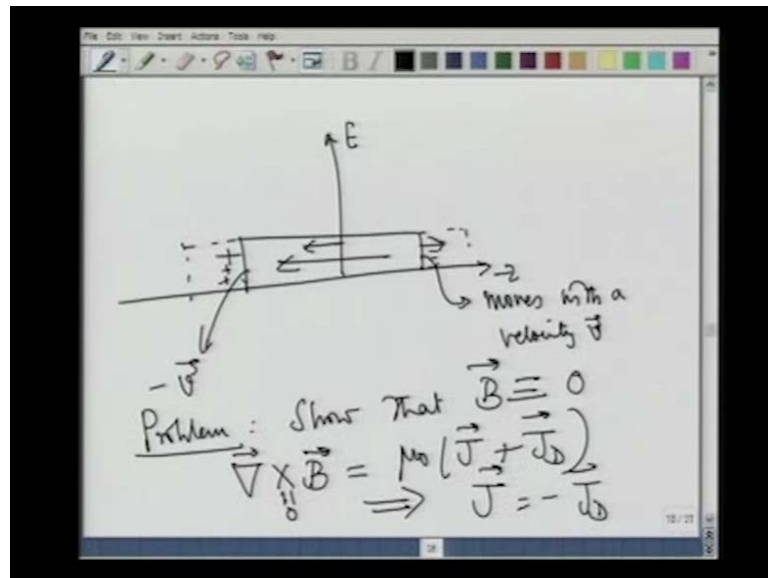 File Edit View Insert Actions Tools Help
B I
E
+
+
+
z
moves with a
velocity \vec{v}
-\vec{v}
Problem: Show that \vec{B} ≡ 0
\vec{∇} × \vec{B} = μ0 (\vec{J} + \vec{J}_D)
= 0
⟹ \vec{J} = - \vec{J}_D